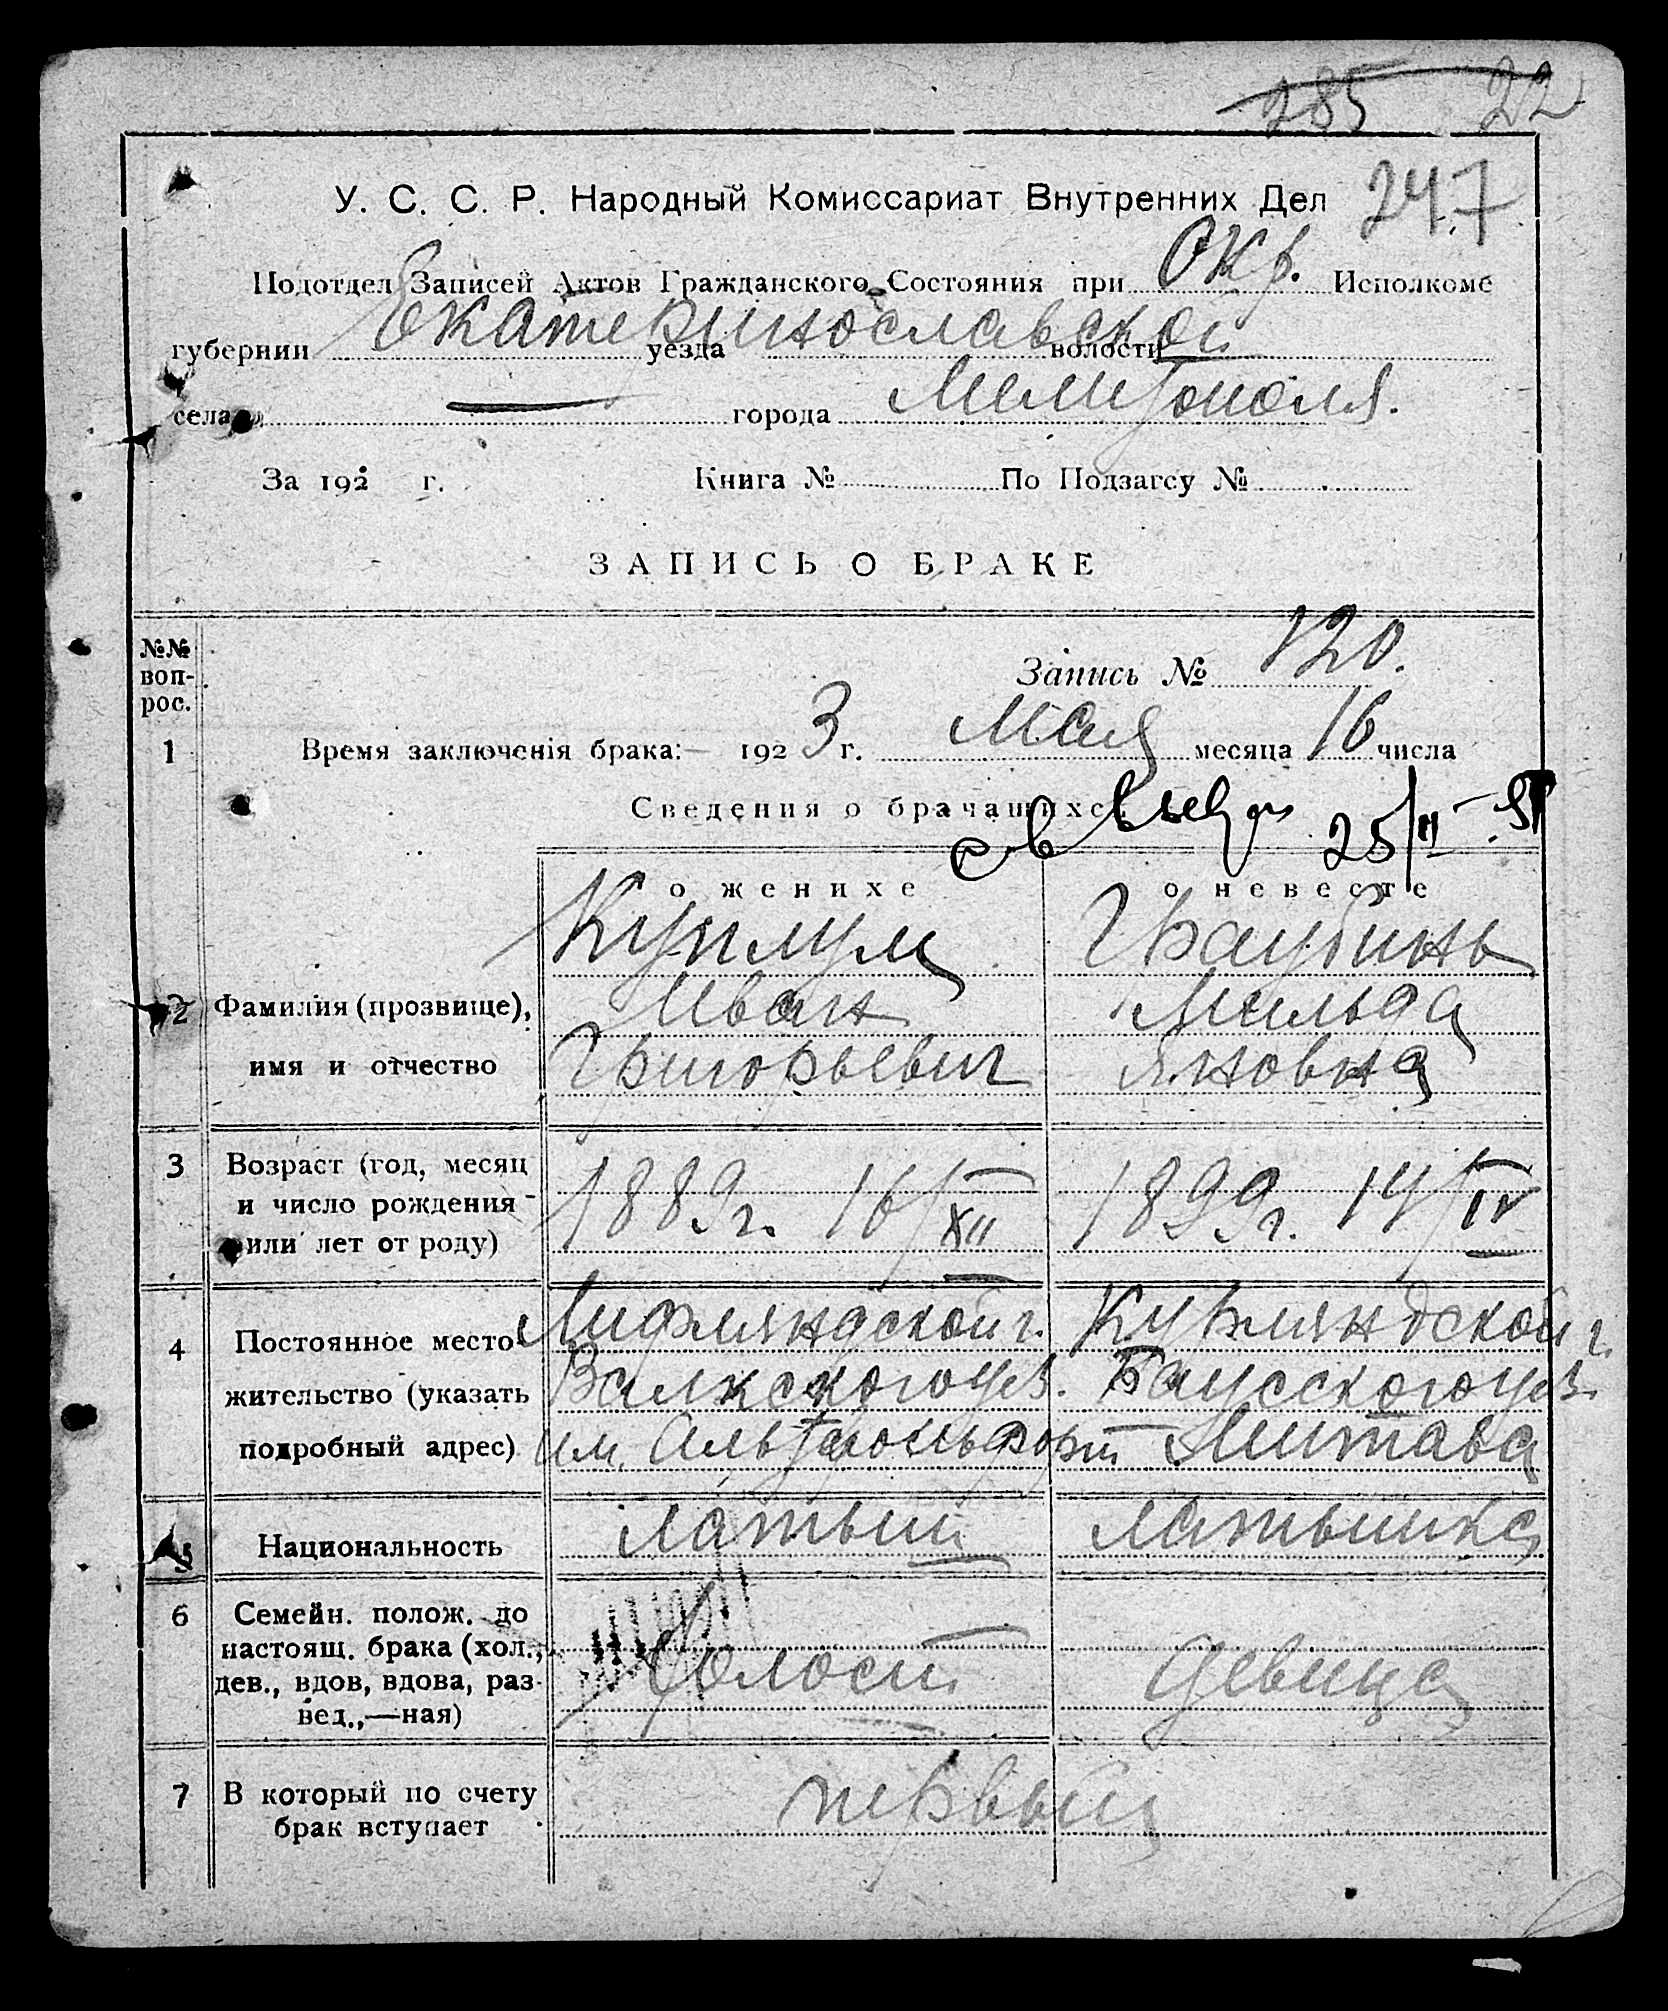 285 22
247
У. С. С. Р. Народный Комиссариат Внутренних Дел
Подотдел Записей Актов Гражданского Состояния при Окр. Исполкоме
губернии Екатеринославской уезда волости
села — города Мелитополя.
За 192 г. Книга № По Подзагсу №
ЗАПИСЬ О БРАКЕ
№№ воп-рос.
Запись № 120.
1 Время заключенія брака:— 1923 г. Мая месяца 16 числа
Сведения о брачащихс
25/II
о женихе о невесте
Куплум Граубинь
2 Фамилия (прозвище), Иван Мильда
имя и отчество Григорьевич Яновна
3 Возраст (год, месяц
и число рождения 1889 г. 16/XII 1899 г. 14/IV
или лет от роду)
Лифляндской г. Курляндской г.
4 Постоянное место-
жительство (указать Валкского уез. Баусского уез.
подробный адрес) им. Митава
5 Национальность латыш латышка
6 Семейн. полож. до
настоящ. брака (хол.,
дев., вдов, вдова, раз- Холост девица
вед.,—ная)
7 В который по счету первый
брак вступает